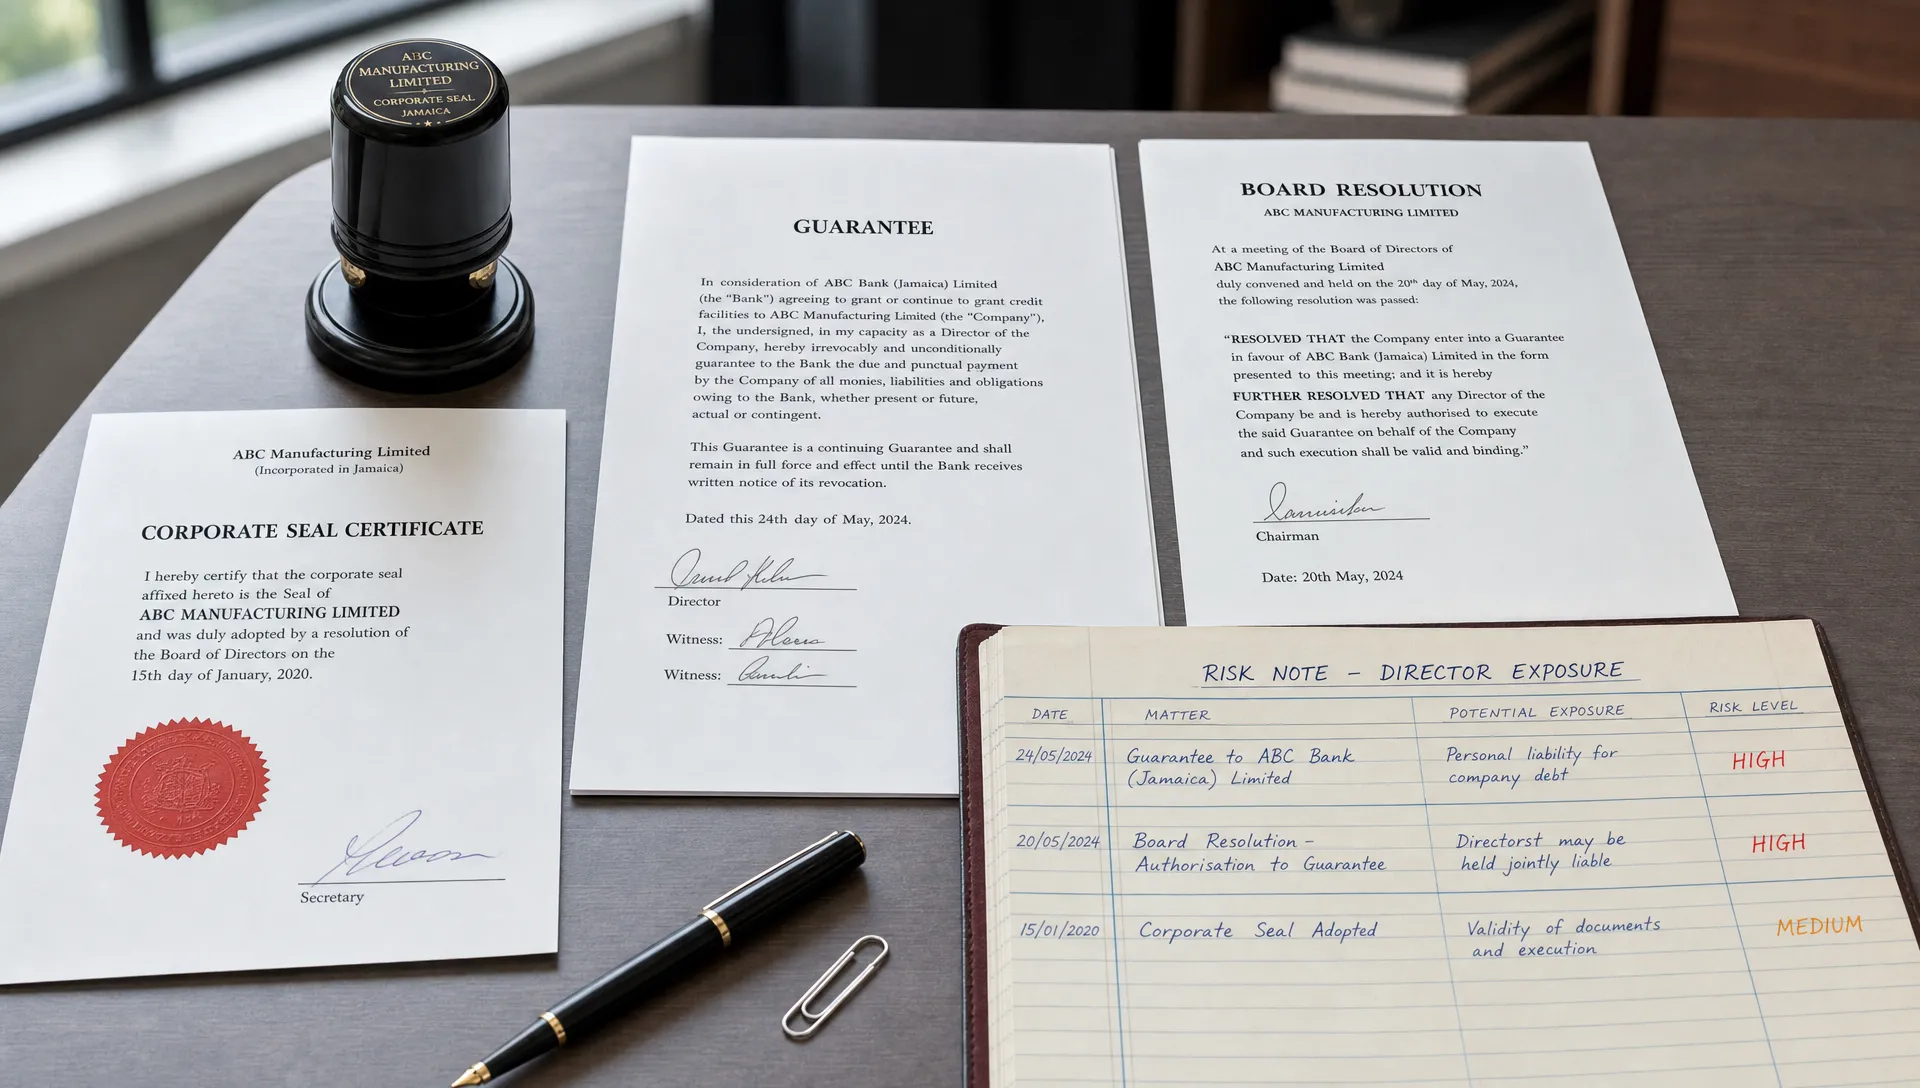 ABC
MANUFACTURING
LIMITED
CORPORATE SEAL
JAMAICA
ABC Manufacturing Limited
(Incorporated in Jamaica)
CORPORATE SEAL CERTIFICATE
I hereby certify that the corporate seal
affixed hereto is the Seal of
ABC MANUFACTURING LIMITED
and was duly adopted by a resolution of
the Board of Directors on the
15th day of January, 2020.
Secretary
GUARANTEE
In consideration of ABC Bank (Jamaica) Limited
(the “Bank”) agreeing to grant or continue to grant credit
facilities to ABC Manufacturing Limited (the “Company”),
I, the undersigned, in my capacity as a Director of the
Company, hereby irrevocably and unconditionally
guarantee to the Bank the due and punctual payment
by the Company of all monies, liabilities and obligations
owing to the Bank, whether present or future,
actual or contingent.
This Guarantee is a continuing Guarantee and shall
remain in full force and effect until the Bank receives
written notice of its revocation.
Dated this 24th day of May, 2024.
Director
Witness:
Witness:
BOARD RESOLUTION
ABC MANUFACTURING LIMITED
At a meeting of the Board of Directors of
ABC Manufacturing Limited
duly convened and held on the 20th day of May, 2024,
the following resolution was passed:
“RESOLVED THAT the Company enter into a Guarantee
in favour of ABC Bank (Jamaica) Limited in the form
presented to this meeting; and it is hereby
FURTHER RESOLVED THAT any Director of the
Company be and is hereby authorised to execute
the said Guarantee on behalf of the Company
and such execution shall be valid and binding.”
Chairman
Date: 20th May, 2024
RISK NOTE – DIRECTOR EXPOSURE
DATE MATTER POTENTIAL EXPOSURE RISK LEVEL
24/05/2024 Guarantee to ABC Bank Personal liability for HIGH
(Jamaica) Limited company debt
20/05/2024 Board Resolution – Directorst may be HIGH
Authorisation to Guarantee held jointly liable
15/01/2020 Corporate Seal Adopted Validity of documents MEDIUM
and execution